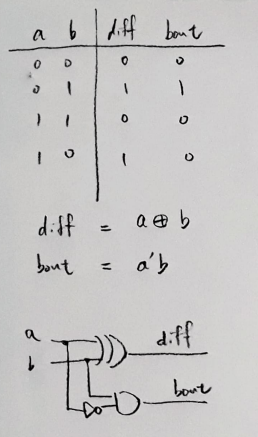 a b diff bout
0 0 0 0
0 1 1 1
1 1 0 0
1 0 1 0
diff = a ⊕ b
bout = a'b
a diff
b
bout